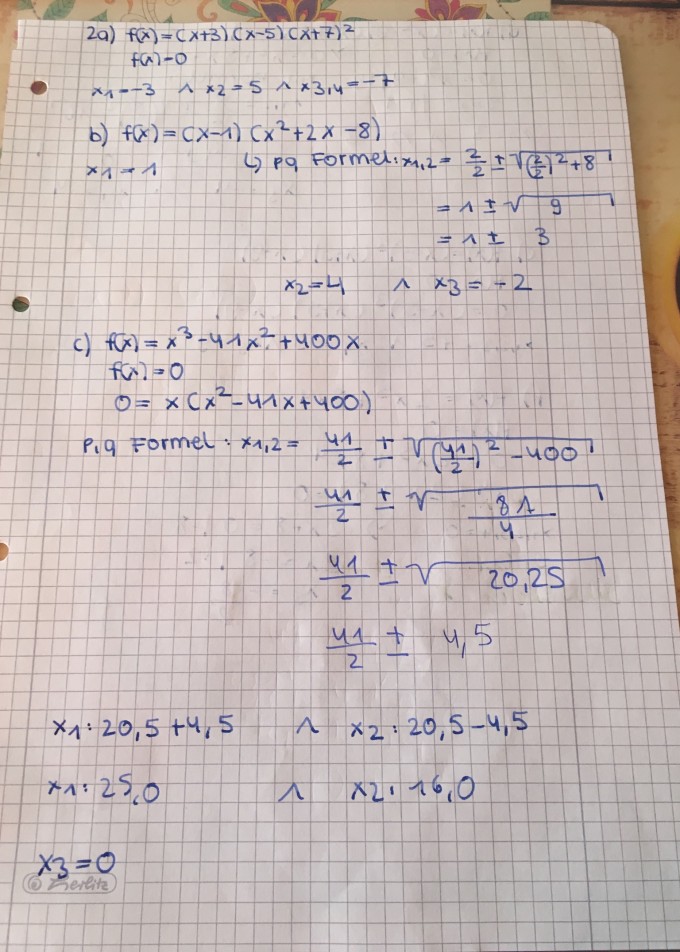 2a) f(x) = (x+3) (x-5) (x+7)²
f(x)=0
x1=-3 ∧ x2=5 ∧ x3,4=-7
b) f(x) = (x-1) (x²+2x-8)
x1=1 ↳ pq Formel: x1,2= 2/2 ± √((2/2)²+8)
= 1 ± √9
= 1 ± 3
x2=4 ∧ x3=-2
c) f(x) = x³-41x²+400x
f(x)=0
0= x(x²-41x+400)
p,q Formel: x1,2= 41/2 ± √((41/2)²-400)
41/2 ± √(81/4)
41/2 ± √20,25
41/2 ± 4,5
x1: 20,5+4,5 ∧ x2: 20,5-4,5
x1: 25,0 ∧ x2: 16,0
x3=0
Herlitz